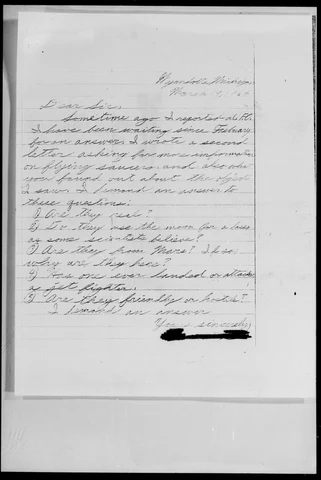 March
Dear Sir,
Sometime ago I reported a
I have been waiting since February
for an answer. I wrote a second
letter asking for more information
on flying saucers and also what
you found out about the object
I saw. I demand an answer to
these questions:
1) Are they real?
2) Do they use the moon for a base
as some scientists believe?
3) Are they from Mars? If so,
why are they here?
4) Has one ever landed or attack
a jet fighter.
5) Are they friendly or hostile?
I demand an answer
Yours sincerely,